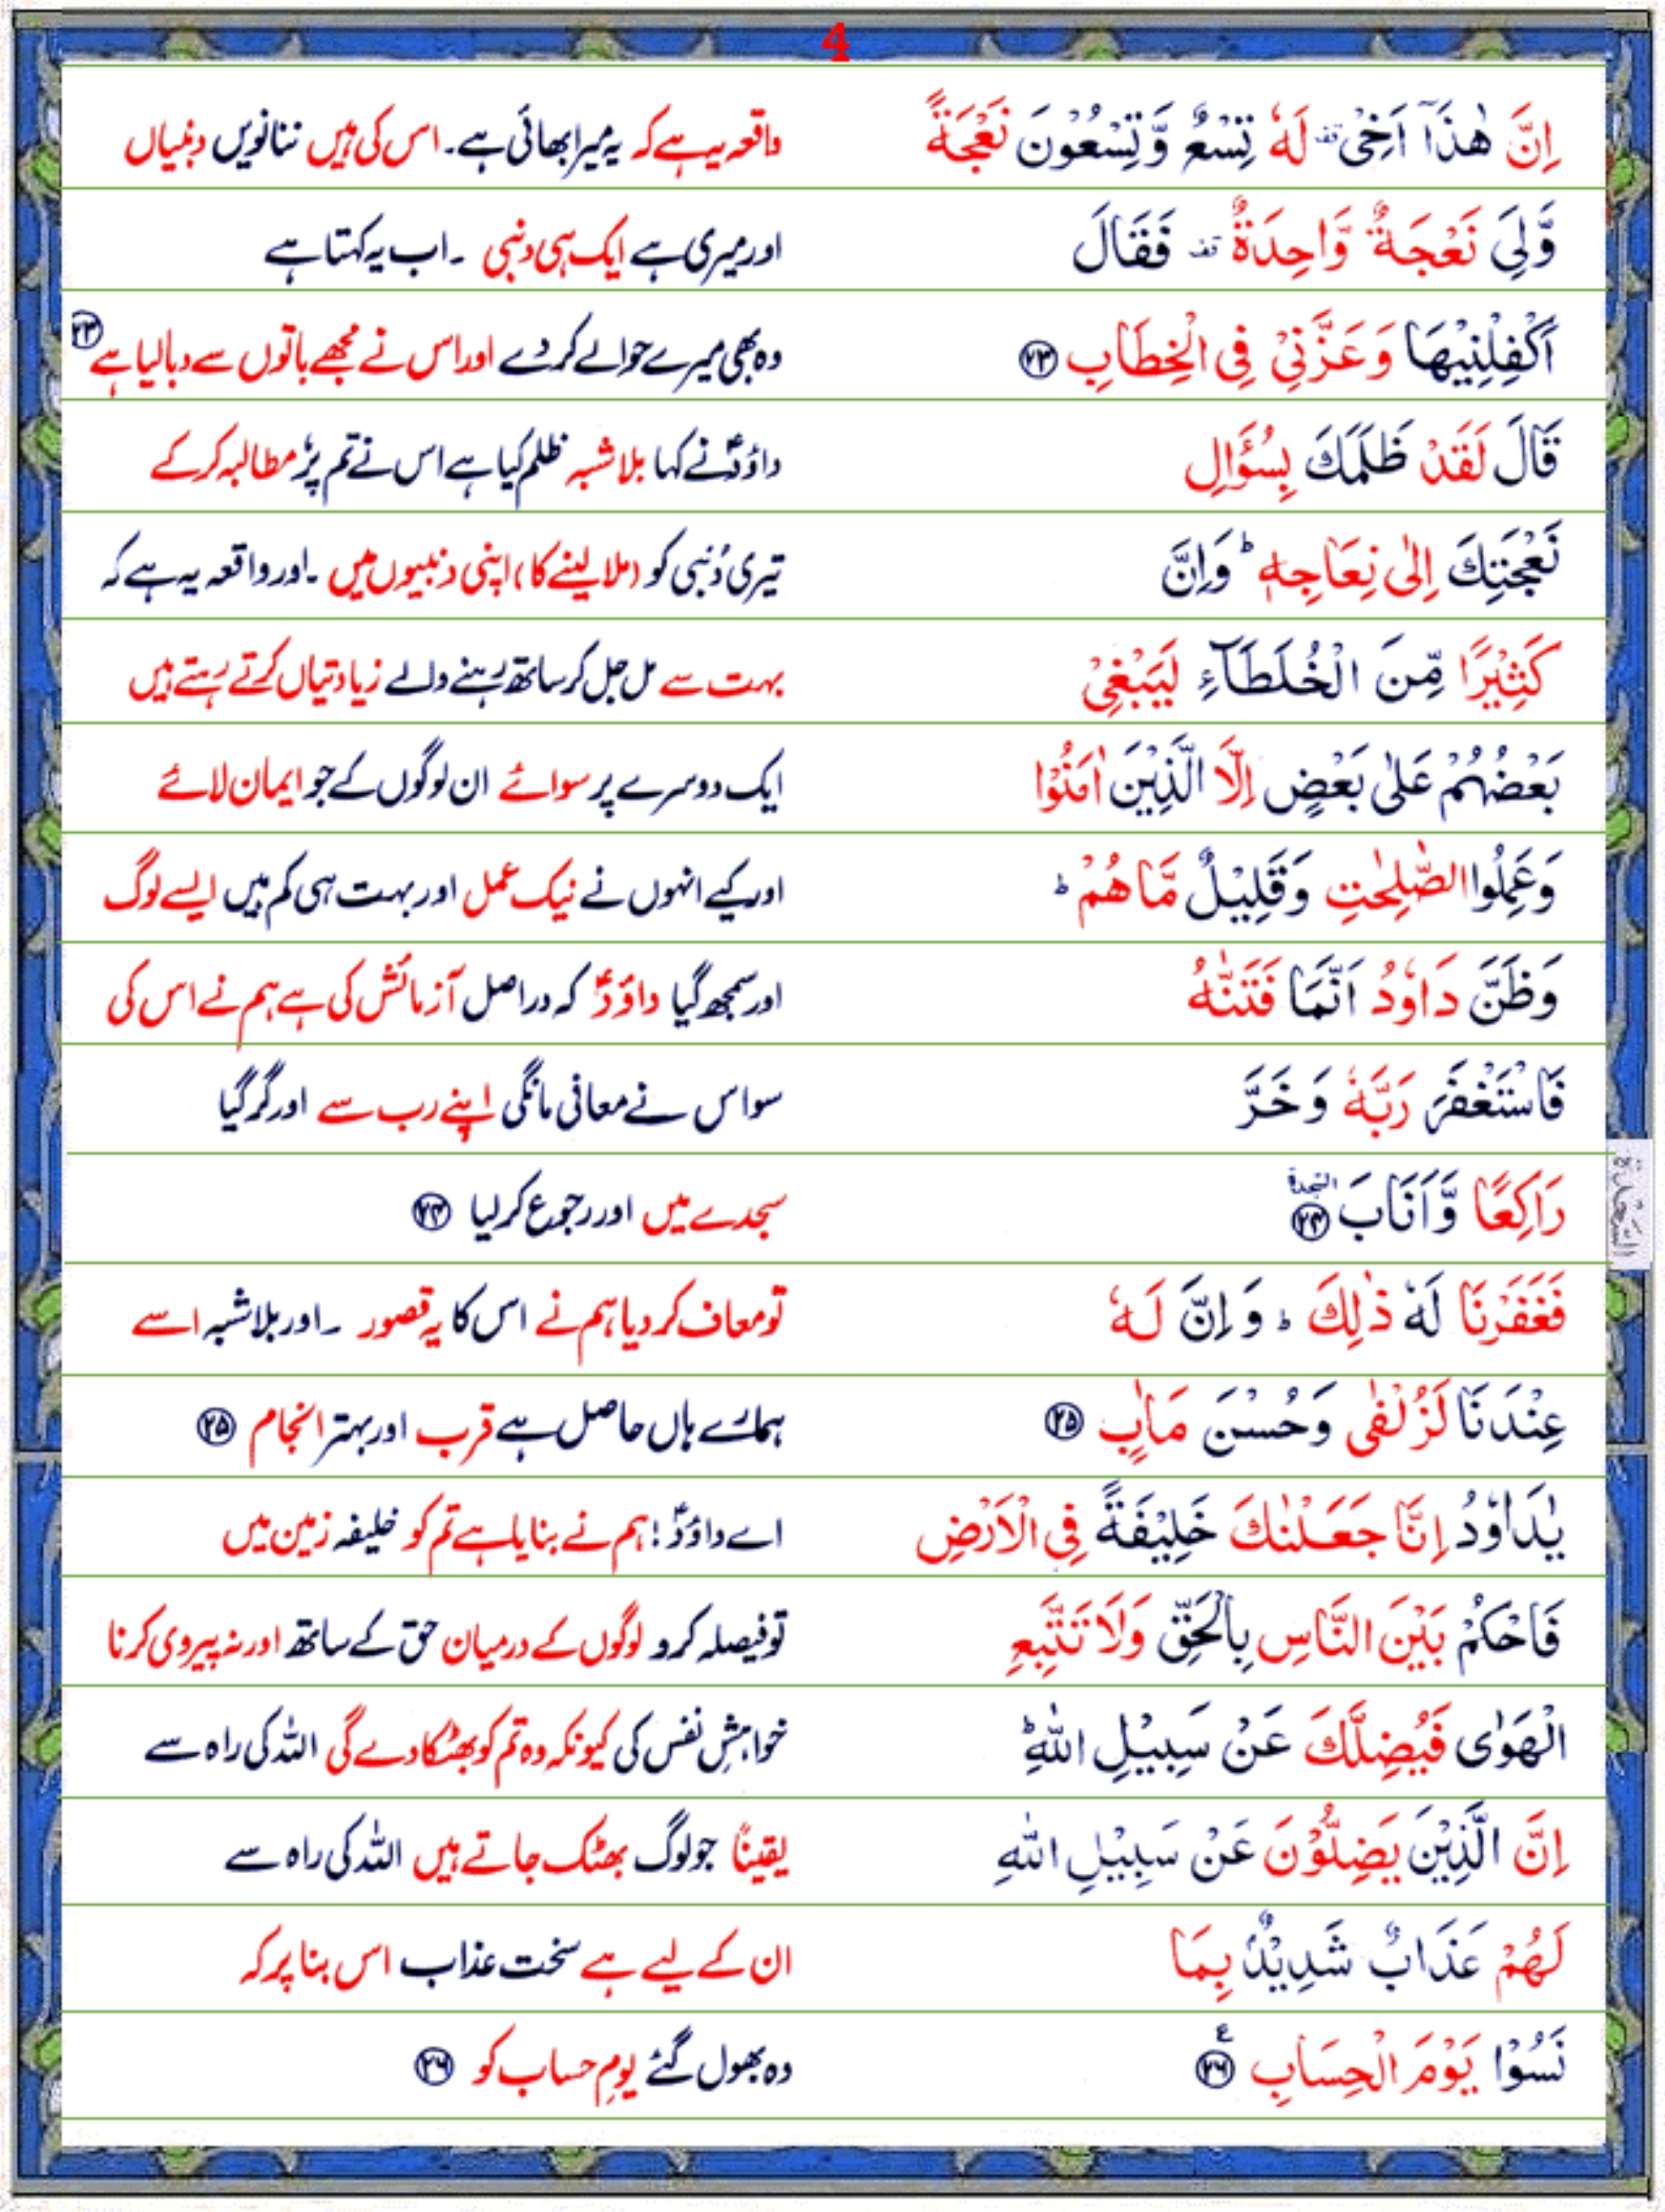 4
اِنَّ هٰذَاۤ اَخِیْ ۟ لَهٗ تِسْعٌ وَّتِسْعُوْنَ نَعْجَةً واقعہ یہ ہے کہ یہ میرا بھائی ہے۔ اس کی ہیں ننانویں دنبیاں
وَّلِیَ نَعْجَةٌ وَّاحِدَةٌ ۟ فَقَالَ اور میری ہے ایک ہی دنبی ۔ اب یہ کہتا ہے
اَكْفِلْنِیْهَا وَعَزَّنِیْ فِی الْخِطَابِ ﴿۲۳﴾ وہ بھی میرے حوالے کر دے اور اس نے مجھے باتوں سے دبا لیا ہے ﴿۲۳﴾
قَالَ لَقَدْ ظَلَمَكَ بِسُؤَالِ داؤدؑ نے کہا بلاشبہ ظلم کیا ہے اس نے تم پر مطالبہ کر کے
نَعْجَتِكَ اِلٰی نِعَاجِهٖ ؕ وَاِنَّ تیری دُنبی کو (ملا لینے کا) اپنی دنبیوں میں ۔ اور واقعہ یہ ہے کہ
كَثِیْرًا مِّنَ الْخُلَطَآءِ لَیَبْغِیْ بہت سے مل جل کر ساتھ رہنے والے زیادتیاں کرتے رہتے ہیں
بَعْضُهُمْ عَلٰی بَعْضٍ اِلَّا الَّذِیْنَ اٰمَنُوْا ایک دوسرے پر سوائے ان لوگوں کے جو ایمان لائے
وَعَمِلُوا الصّٰلِحٰتِ وَقَلِیْلٌ مَّا هُمْ ؕ اور کیے انہوں نے نیک عمل اور بہت ہی کم ہیں ایسے لوگ
وَظَنَّ دَاوٗدُ اَنَّمَا فَتَنّٰهُ اور سمجھ گیا داؤدؑ کہ دراصل آزمائش کی ہے ہم نے اس کی
فَاسْتَغْفَرَ رَبَّهٗ وَ خَرَّ سو اس نے معافی مانگی اپنے رب سے اور گر گیا
رَاكِعًا وَّاَنَابَ السجدة ﴿۲۴﴾ سجدے میں اور رجوع کر لیا ﴿۲۴﴾
السَّجْدَة
فَغَفَرْنَا لَهٗ ذٰلِكَ ؕ وَ اِنَّ لَهٗ تو معاف کر دیا ہم نے اس کا یہ قصور ۔ اور بلاشبہ اسے
عِنْدَنَا لَزُلْفٰی وَحُسْنَ مَاٰبٍ ﴿۲۵﴾ ہمارے ہاں حاصل ہے قرب اور بہتر انجام ﴿۲۵﴾
یٰدَاوٗدُ اِنَّا جَعَلْنٰكَ خَلِیْفَةً فِی الْاَرْضِ اے داؤدؑ! ہم نے بنایا ہے تم کو خلیفہ زمین میں
فَاحْكُمْ بَیْنَ النَّاسِ بِالْحَقِّ وَلَا تَتَّبِعِ تو فیصلہ کرو لوگوں کے درمیان حق کے ساتھ اور نہ پیروی کرنا
الْهَوٰی فَیُضِلَّكَ عَنْ سَبِیْلِ اللّٰهِ ؕ خواہشِ نفس کی کیونکہ وہ تم کو بھٹکا دے گی اللہ کی راہ سے
اِنَّ الَّذِیْنَ یَضِلُّوْنَ عَنْ سَبِیْلِ اللّٰهِ یقیناً جو لوگ بھٹک جاتے ہیں اللہ کی راہ سے
لَهُمْ عَذَابٌ شَدِیْدٌۢ بِمَا ان کے لیے ہے سخت عذاب اس بنا پر کہ
نَسُوْا یَوْمَ الْحِسَابِ ﴿۲۶﴾ ع وہ بھول گئے یومِ حساب کو ﴿۲۶﴾